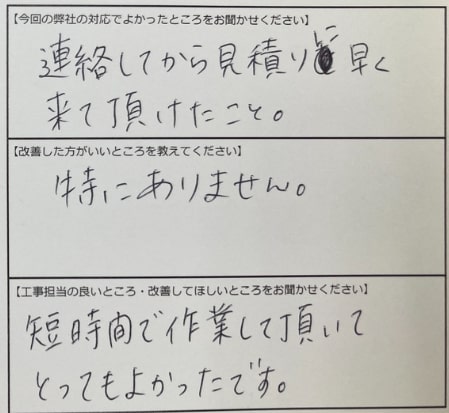 【今回の弊社の対応でよかったところをお聞かせください】
連絡してから見積りに早く
来て頂けたこと。
【改善した方がいいところを教えてください】
特にありません。
【工事担当の良いところ・改善してほしいところをお聞かせください】
短時間で作業して頂いて
とってもよかったです。